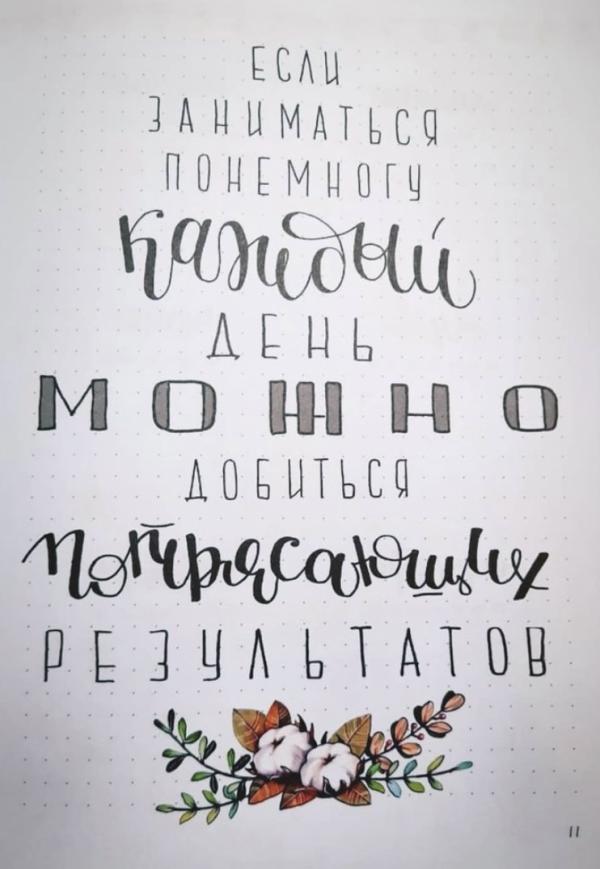 ЕСЛИ
ЗАНИМАТЬСЯ
ПОНЕМНОГУ
каждый
ДЕНЬ
МОЖНО
ДОБИТЬСЯ
потрясающих
РЕЗУЛЬТАТОВ
11